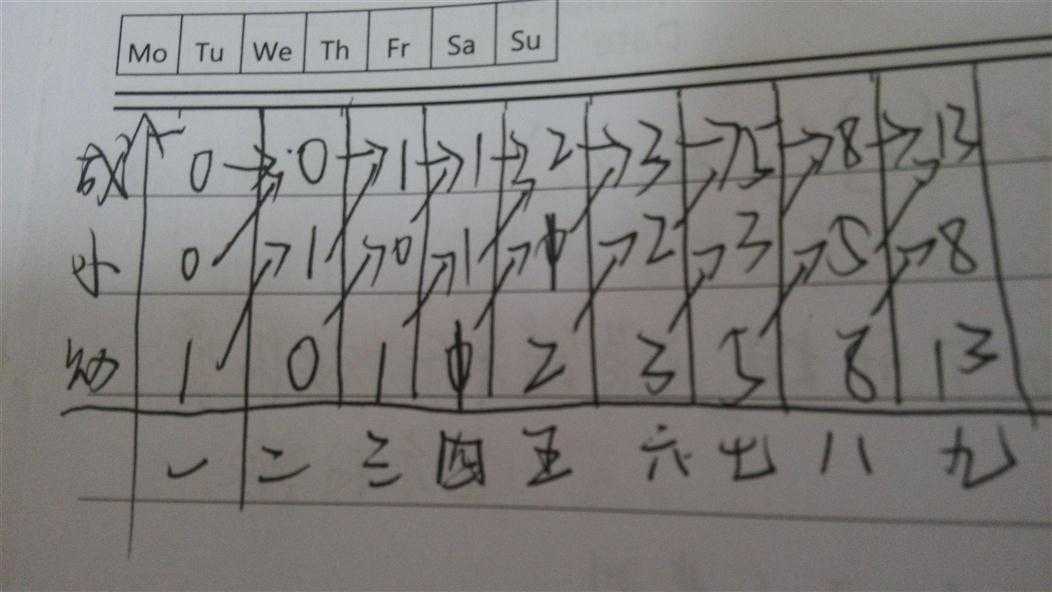 Mo Tu We Th Fr Sa Su
成 0 0 1 1 2 3 5 8 13
小 0 1 0 1 1 2 3 5 8
幼 1 0 1 1 2 3 5 8 13
一 二 三 四 五 六 七 八 九